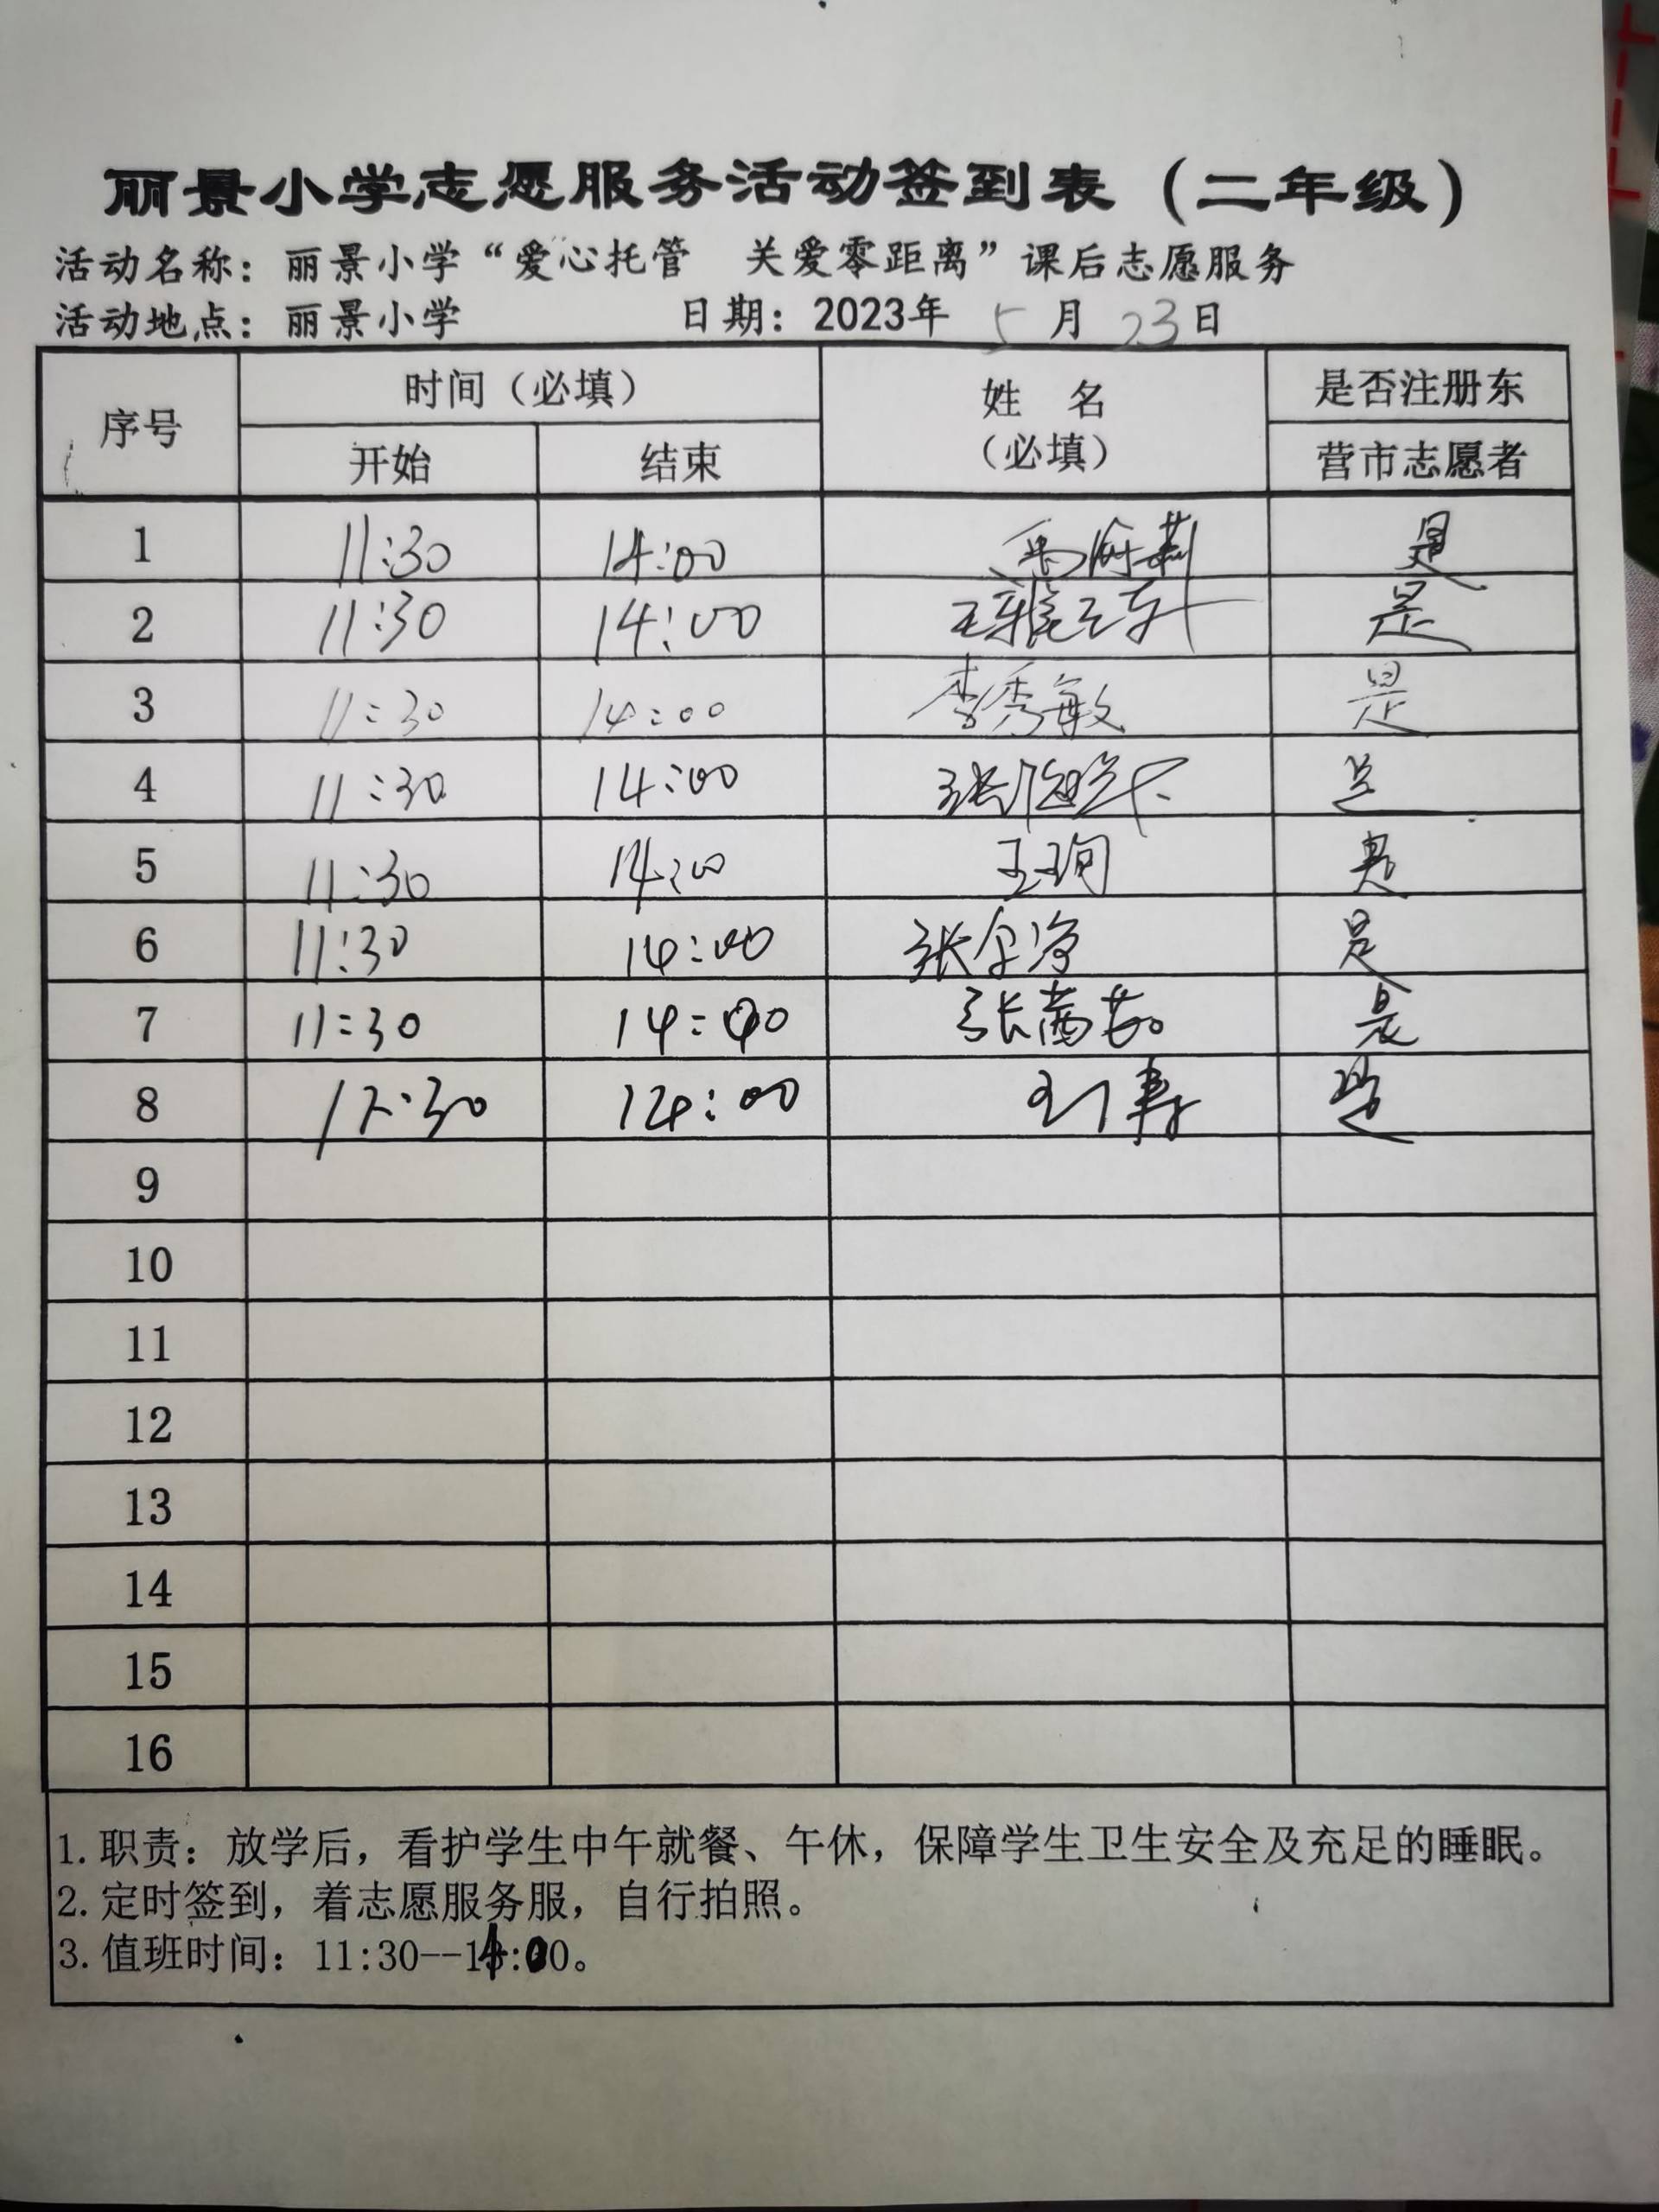 丽景小学志愿服务活动签到表（二年级）
活动名称：丽景小学“爱心托管 关爱零距离”课后志愿服务
活动地点：丽景小学 日期：2023年 5月 23日
序号 时间（必填） 姓 名（必填） 是否注册东营市志愿者
开始 结束
1 11:30 14:00 是
2 11:30 14:00 是
3 11:30 14:00 李秀敏 是
4 11:30 14:00 张 是
5 11:30 14:00 王珣 是
6 11:30 14:00 张 净 是
7 11:30 14:00 张茜茹 是
8 :30 14:00 是
9
10
11
12
13
14
15
16
1.职责：放学后，看护学生中午就餐、午休，保障学生卫生安全及充足的睡眠。
2.定时签到，着志愿服务服，自行拍照。
3.值班时间：11:30--14:00。